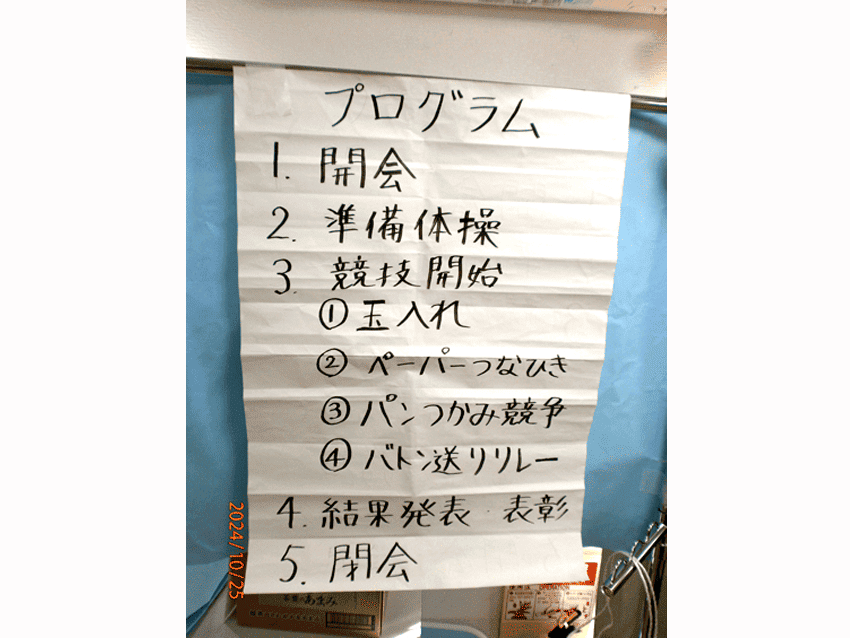 プログラム
1. 開会
2. 準備体操
3. 競技開始
① 玉入れ
② ペーパーつなひき
③ パンつかみ競争
④ バトン送りリレー
4. 結果発表・表彰
5. 閉会
2024/10/25
OPERATION